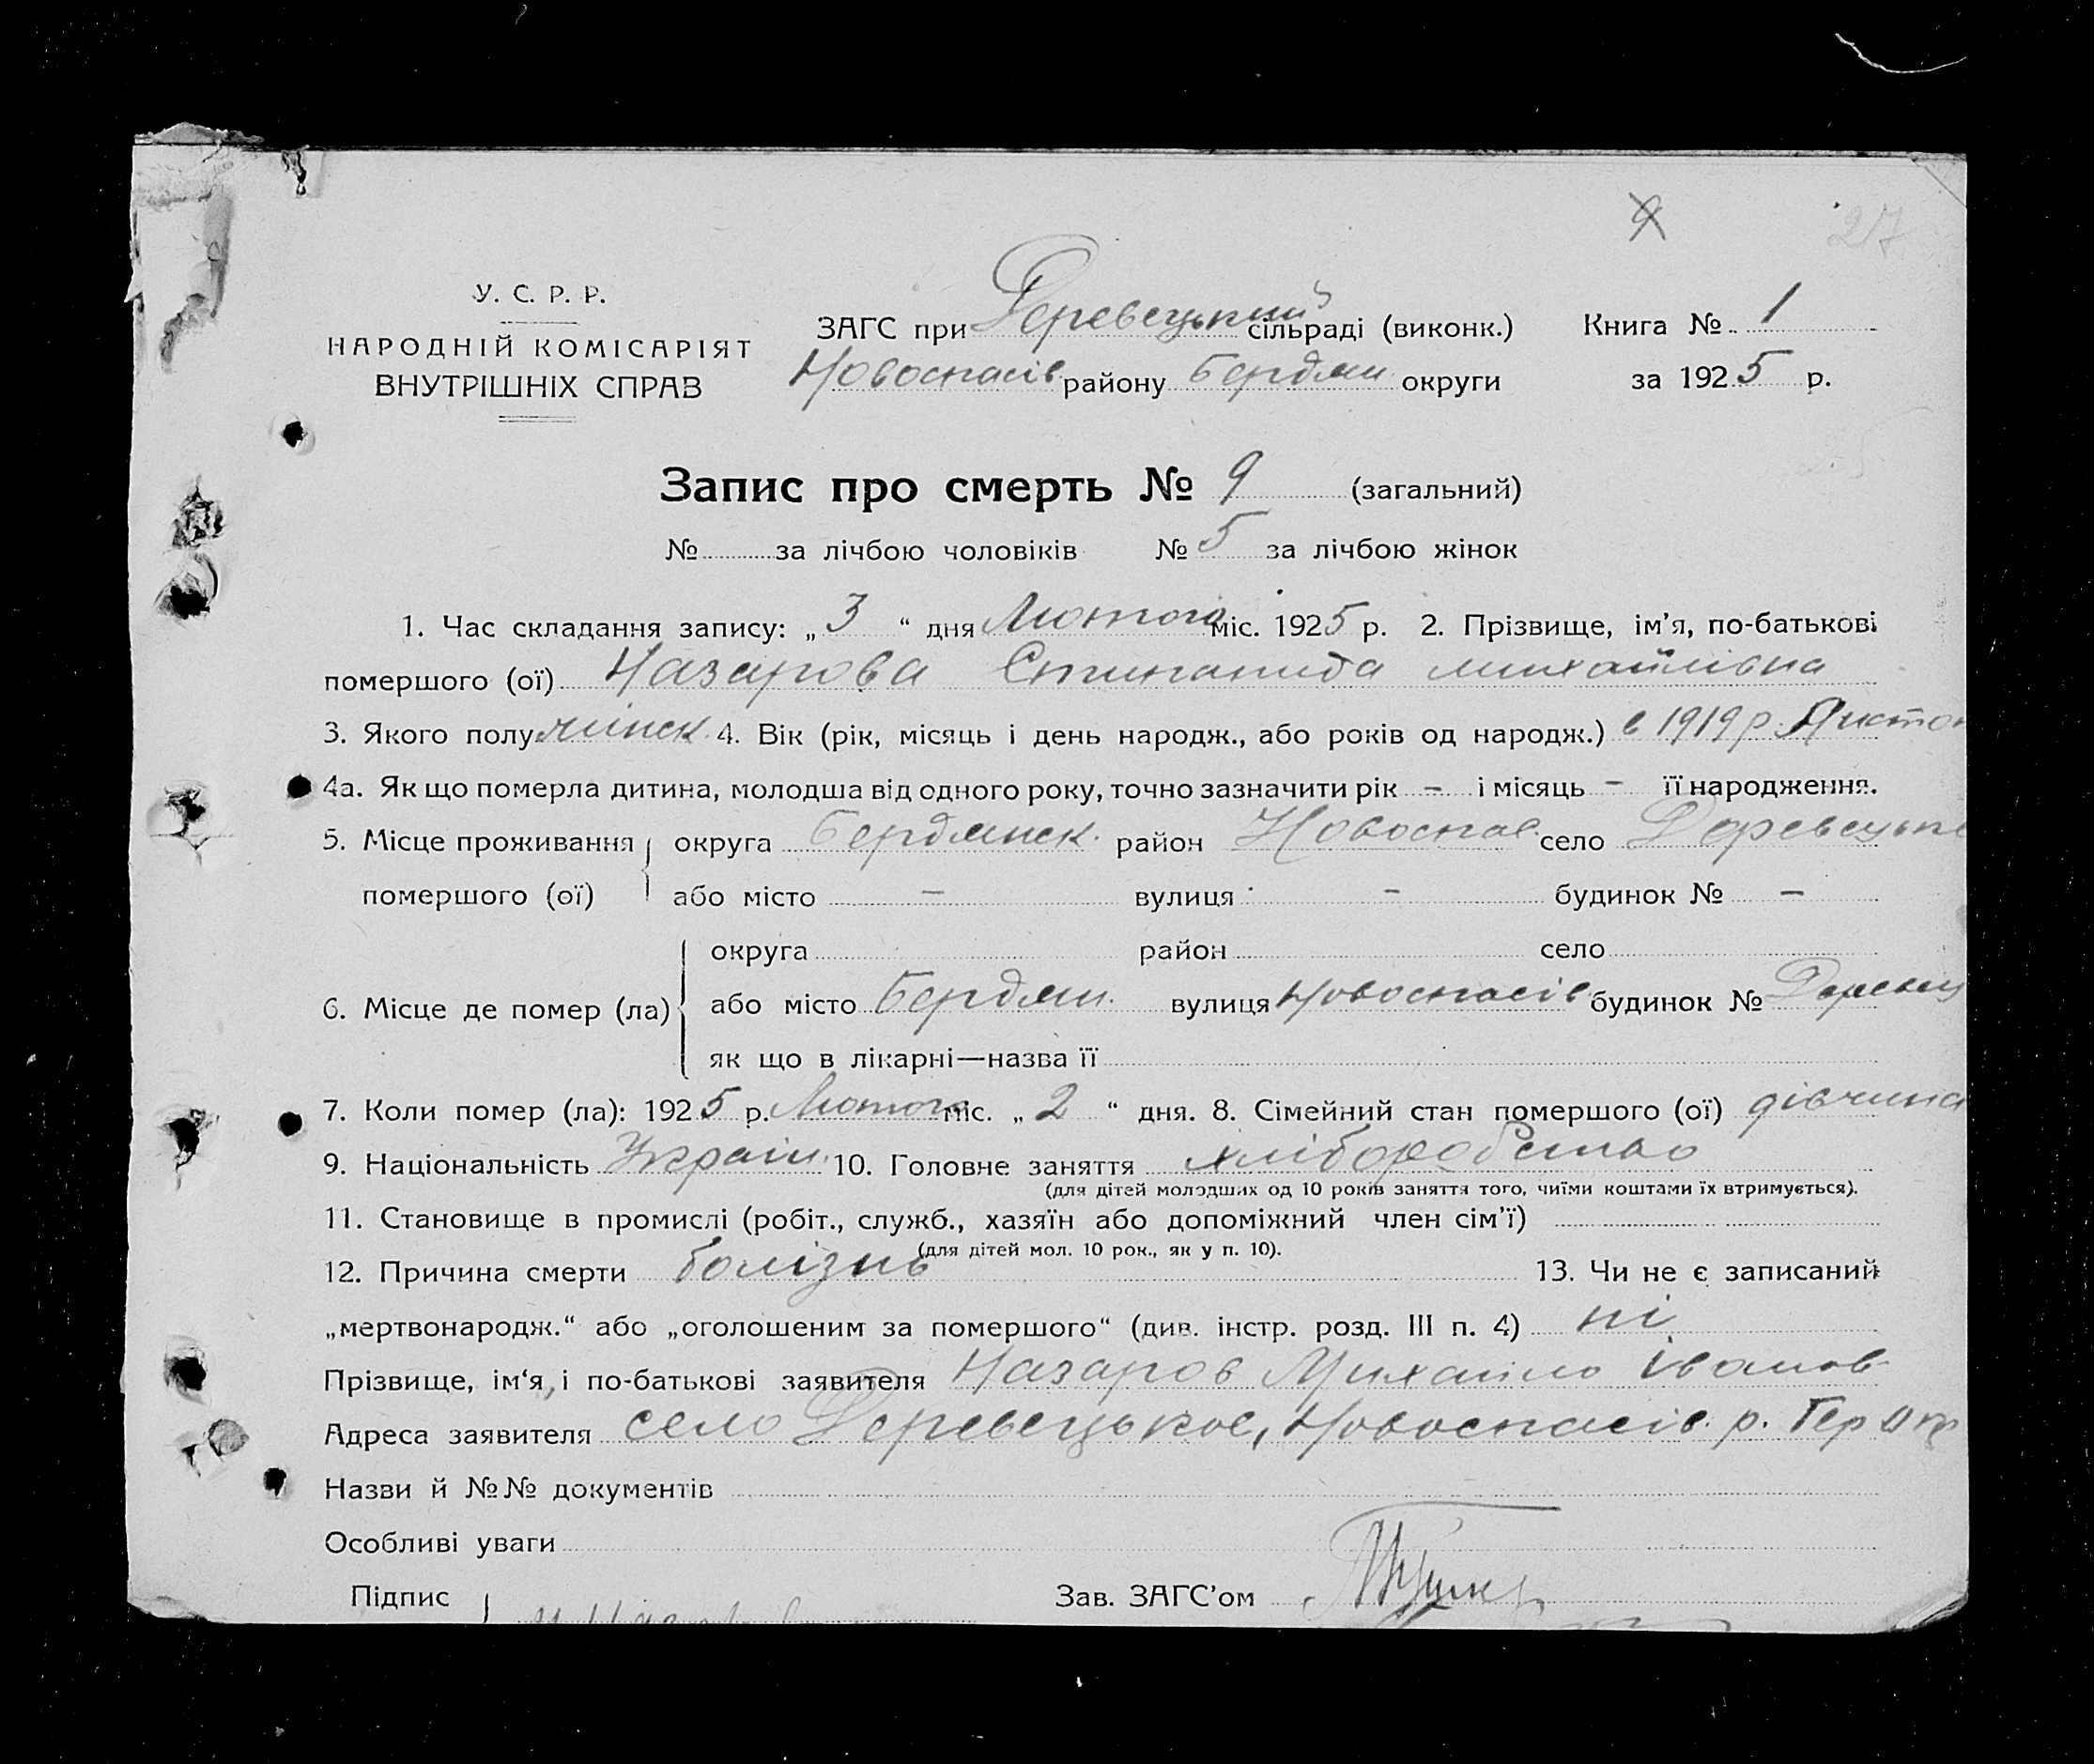 9 27
У. С. Р. Р.
НАРОДНІЙ КОМІСАРІЯТ
ВНУТРІШНІХ СПРАВ
ЗАГС при Деревецький сільраді (виконк.) Книга № 1
Новоспасів району Бердян округи за 1925 р.
Запис про смерть № 9 (загальний)
№ за лічбою чоловіків № 5 за лічбою жінок
1. Час складання запису: „ 3 “ дня Лютого міс. 1925 р. 2. Прізвище, ім'я, по-батькові
помершого (ої) Назарова Степанида михайлівна
3. Якого полу жінск. 4. Вік (рік, місяць і день народж., або років од народж.) в 1919 р.
4а. Як що померла дитина, молодша від одного року, точно зазначити рік – і місяць – її народження.
5. Місце проживання округа Бердянск. район Новоспас. село Деревецьке
помершого (ої) або місто – вулиця – будинок № –
округа район село
6. Місце де помер (ла) або місто Бердян. вулиця Новоспасів будинок № Деревец
як що в лікарні—назва її
7. Коли помер (ла): 1925 р. Лютого міс. „ 2 “ дня. 8. Сімейний стан помершого (ої) дівчина
9. Національність Україн. 10. Головне заняття хліборобство
(для дітей молодших од 10 років заняття того, чиїми коштами їх втримується).
11. Становище в промислі (робіт., служб., хазяїн або допоміжний член сім'ї)
(для дітей мол. 10 рок., як у п. 10).
12. Причина смерти болізнь 13. Чи не є записаний
„мертвонародж.“ або „оголошеним за помершого“ (див. інстр. розд. III п. 4) ні
Прізвище, ім'я, і по-батькові заявителя Назаров Михайло Іванов
Адреса заявителя село Деревецькое, Новоспасів. р.
Назви й №№ документів
Особливі уваги
Підпис Зав. ЗАГС'ом